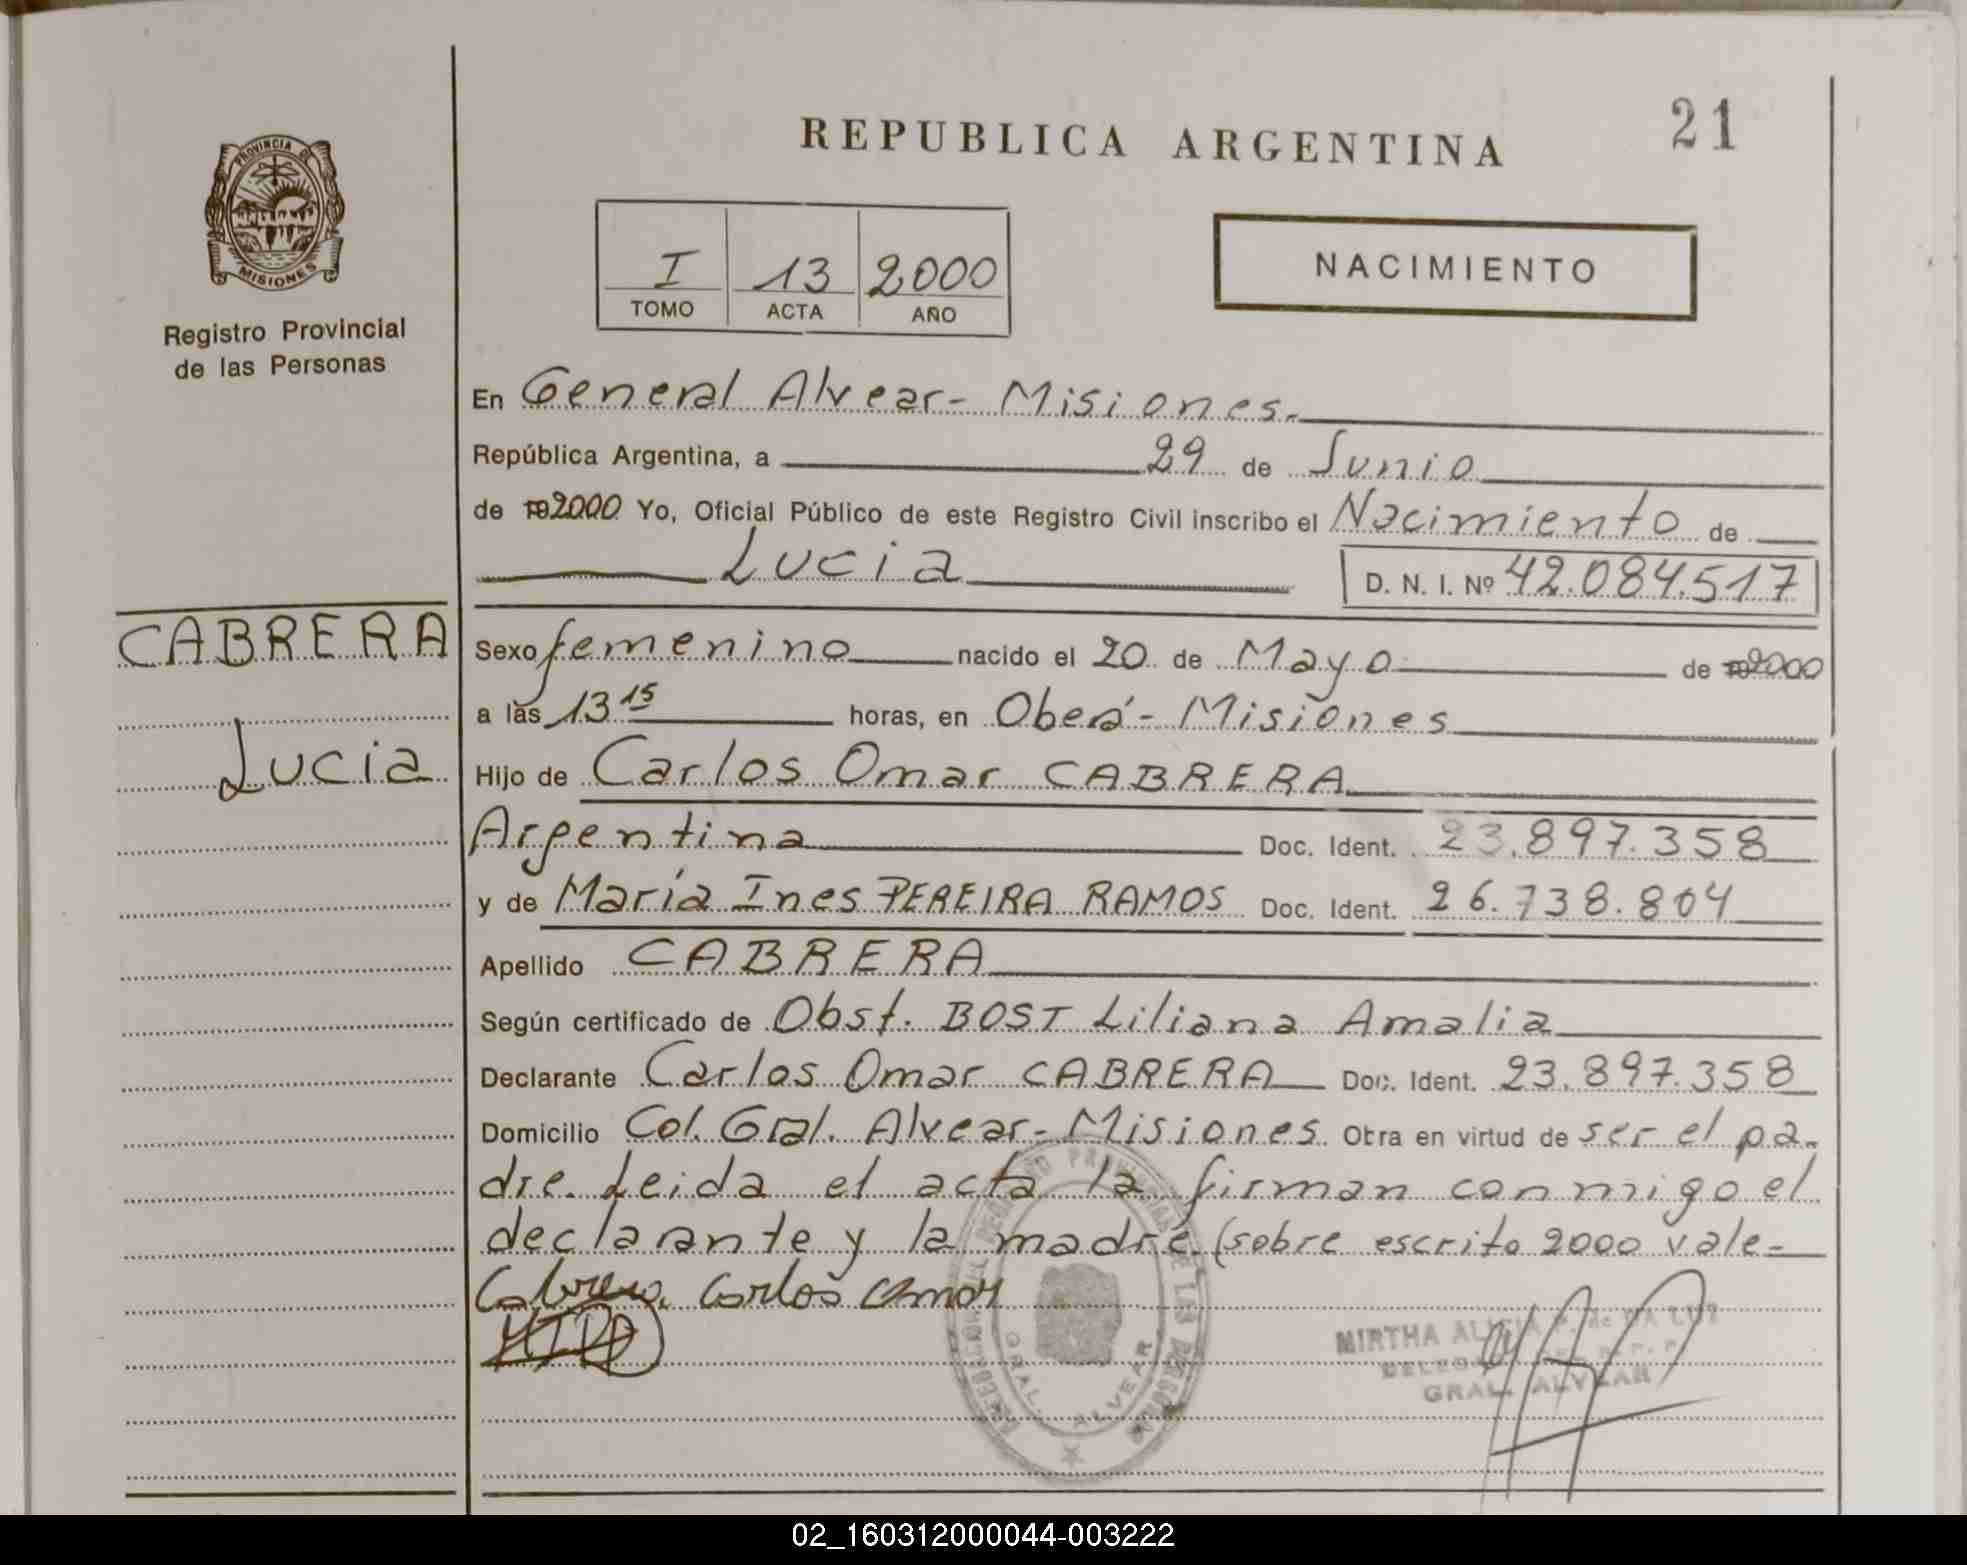 REPUBLICA ARGENTINA
21
PROVINCIA DE
MISIONES
Registro Provincial
de las Personas
I 13 2000
TOMO ACTA AÑO
NACIMIENTO
En General Alvear - Misiones.
República Argentina, a 29 de Junio
de 2000 Yo, Oficial Público de este Registro Civil inscribo el Nacimiento de
Lucia D. N. I. Nº 42.084.517
CABRERA
Lucia
Sexo femenino nacido el 20 de Mayo de 2000
a las 13 15 horas, en Oberá - Misiones
Hijo de Carlos Omar CABRERA
Argentina Doc. Ident. 23.897.358
y de María Ines PEREIRA RAMOS Doc. Ident. 26.738.804
Apellido CABRERA
Según certificado de Obst. BOST Liliana Amalia
Declarante Carlos Omar CABRERA Doc. Ident. 23.897.358
Domicilio Col. Gral. Alvear - Misiones Otra en virtud de ser el pa-
dre. Leida el acta la firman conmigo el
declarante y la madre. (sobre escrito 2000 vale-
Cabrera Carlos Omar
GRAL. ALVEAR
MIRTHA ALICIA
GRAL. ALVEAR
02_160312000044-003222